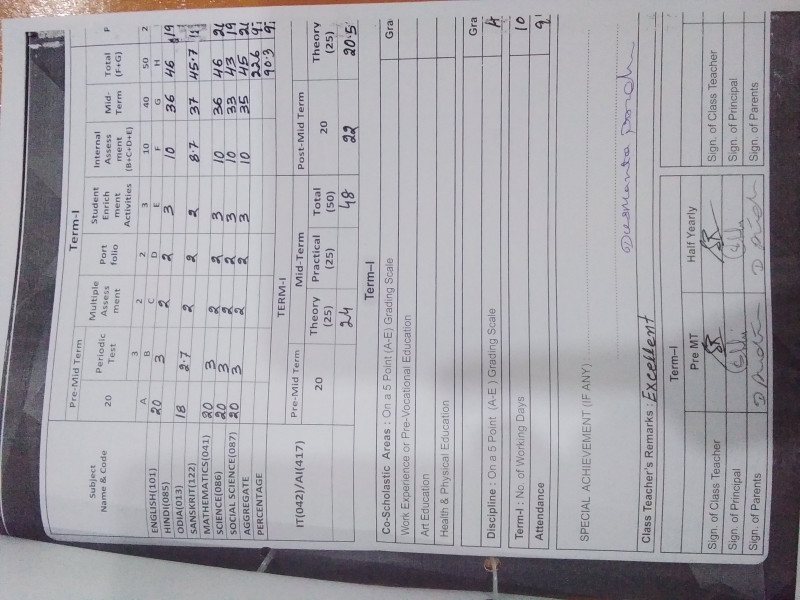 Term-I
Subject Name & Code
Pre-Mid Term
Periodic Test
Multiple Assess ment
Port folio
Student Enrich ment Activities
Internal Assess ment (B+C+D+E)
Mid-Term
Total (F+G)
P
20 3 2 2 3 10 40 50 2
A B C D E F G H
ENGLISH(101) 20 3 2 2 3 10 36 46 19
HINDI(085)
ODIA(013) 18 2.7 2 2 2 8.7 37 45.7
SANSKRIT(122)
MATHEMATICS(041) 20 3 2 2 3 10 36 46
SCIENCE(086) 20 3 2 2 3 10 33 43 19
SOCIAL SCIENCE(087) 20 3 2 2 3 10 35 45
AGGREGATE 226
PERCENTAGE 90.3
TERM-I
IT(042)/AI(417)
Pre-Mid Term Mid-Term Post-Mid Term
20 Theory (25) Practical (25) Total (50) 20 Theory (25)
24 48 22 20.5
Term–I
Co-Scholastic Areas : On a 5 Point (A-E) Grading Scale Gra
Work Experience or Pre-Vocational Education
Art Education
Health & Physical Education
Discipline : On a 5 Point (A-E) Grading Scale Gra
A
Term-I : No. of Working Days 10
Attendance 9
SPECIAL ACHIEVEMENT (IF ANY)
Class Teacher's Remarks : Excellent
Term–I
Pre MT Half Yearly
Sign. of Class Teacher Sign. of Class Teacher
Sign. of Principal Sign. of Principal
Sign. of Parents Sign. of Parents